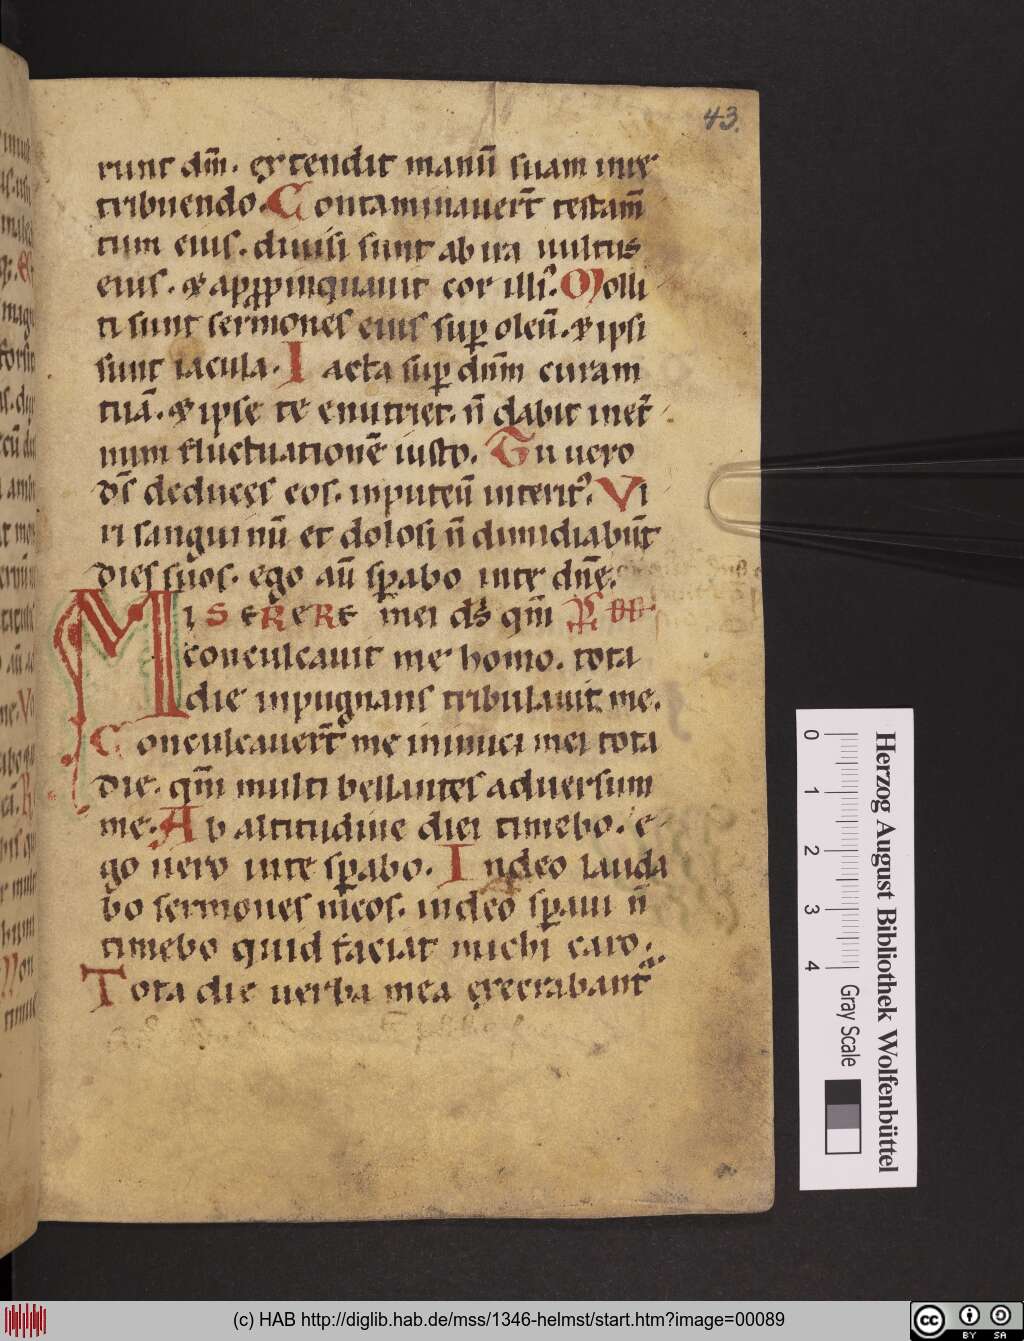 43.
runt dm̄. extendit manū suam in re
tribuendo. Contaminauerr̄ testam̄
tum eius. diuisi sunt ab ira uultus
eius. & appropinquauit cor illi. Molli
ti sunt sermones eius sup oleū. & ipsi
sunt iacula. Iacta sup dnm̄ curam
tuā. & ipse te enutriet. n̄ dabit inet̄
num fluctuationē iusto. Tu uero
ds̄ deduces eos. inputeū interit᷒. Vi
ri sanguinū et dolosi n̄ dimidiabūt
dies suos. ego aū sp̄abo inte dnē.
MISERERE mei ds̄ qm̄
conculcauit me homo. tota
die inpugnans tribulauit me.
Conculcauerr̄ me inimici mei tota
die. qm̄ multi bellantes aduersum
me. Ab altitudine diei timebo. e
go uero inte sp̄abo. Indeo lauda
bo sermones meos. indeo sp̄aui n̄
timebo quid faciat michi caro.
Tota die uerba mea execrabant᷒
0 1 2 3 4
Gray Scale
Herzog August Bibliothek Wolfenbüttel
(c) HAB http://diglib.hab.de/mss/1346-helmst/start.htm?image=00089
cc BY SA